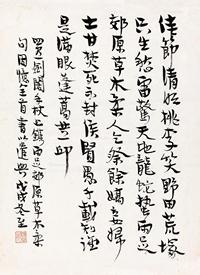 佳節清明桃李笑野田荒塚
只生愁雷驚天地龍蛇蟄雨足
郊原草木柔人乞祭餘嬌妾婦
士甘焚死不封侯賢愚千載知誰
是滿眼蓬蒿共一邱
買劍閣手杖上鐫雨足郊原草木柔
句因憶全首書以遣興戊戌冬至